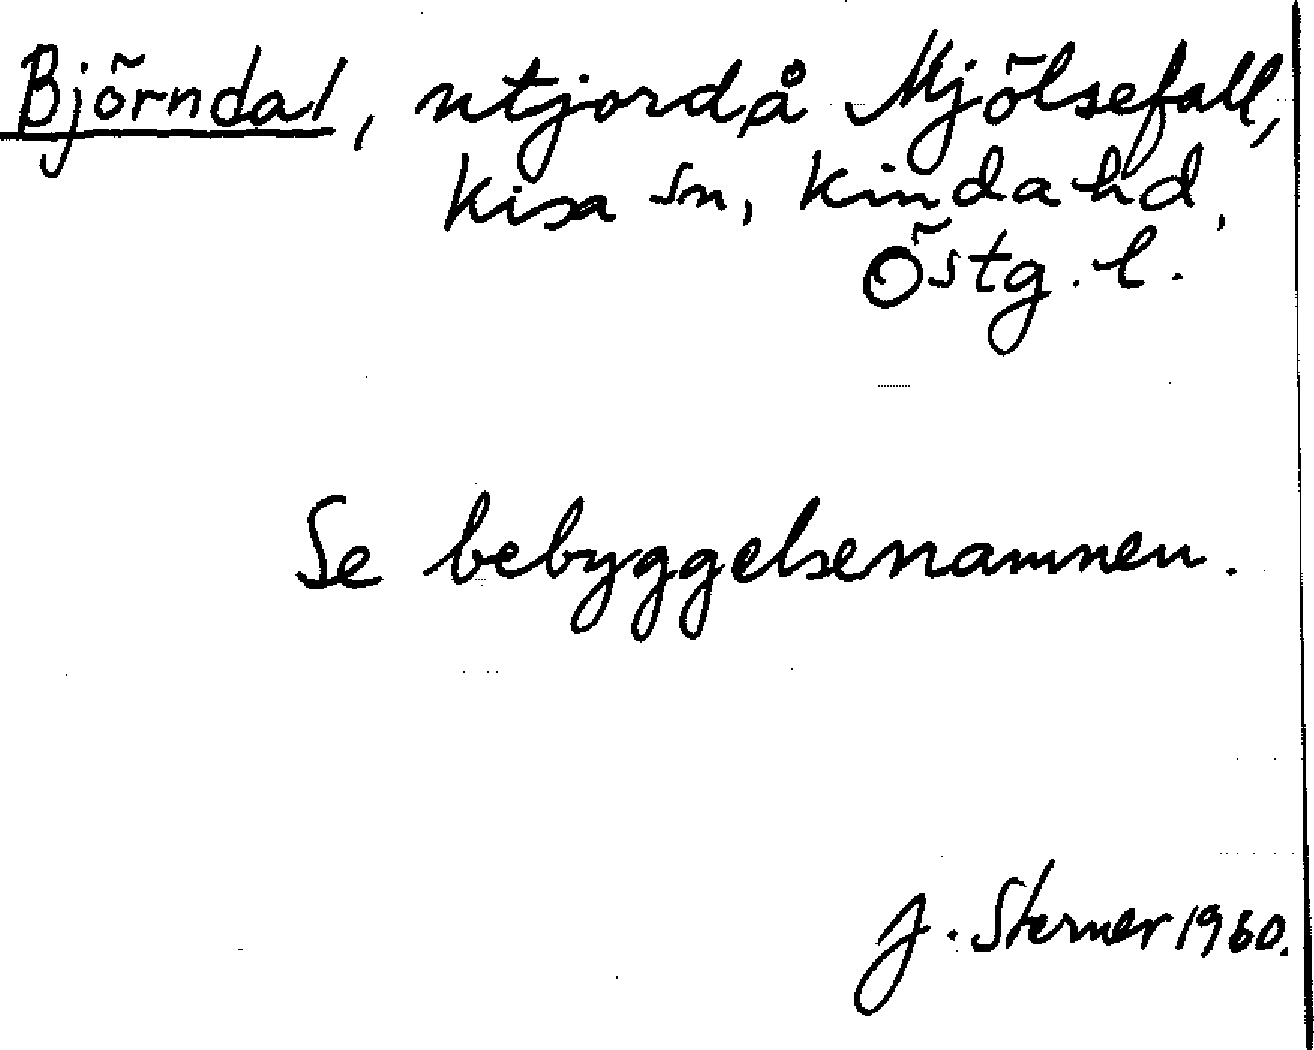 Björndal, utjord å Mjölsefall,
Kisa sn, Kinda hd,
Östg. l.
Se bebyggelsenamnen.
J. Sterner 1960.